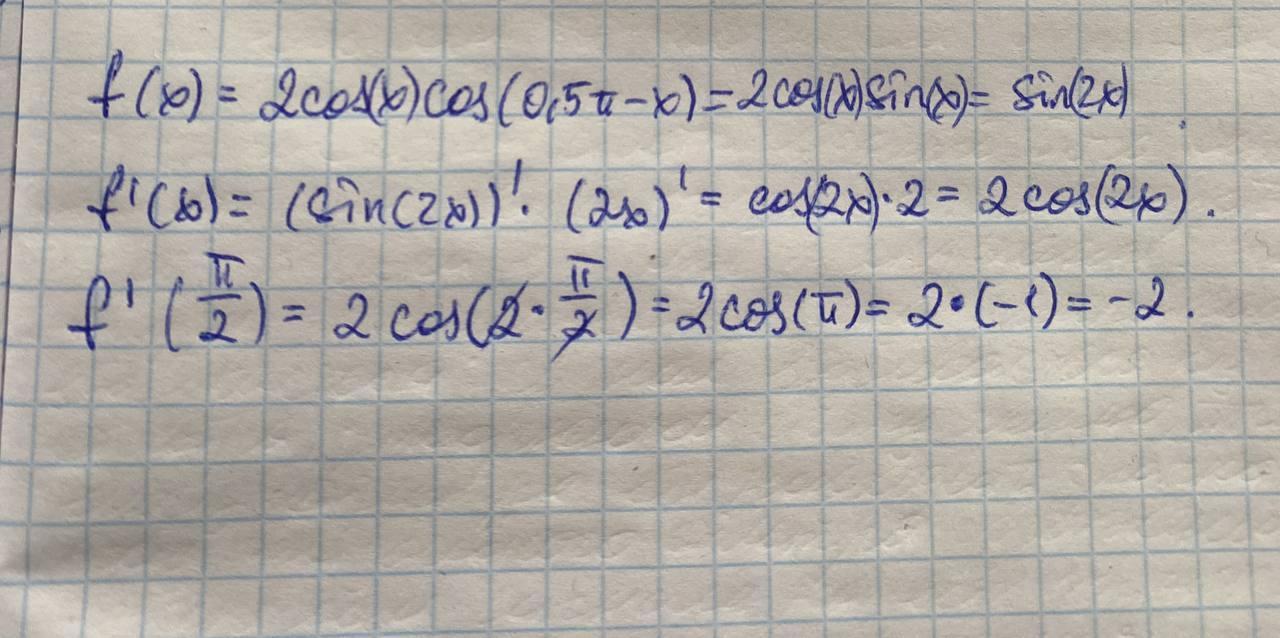 f(x) = 2cos(x)cos(0,5π-x) = 2cos(x)sin(x) = sin(2x)
f'(x) = (sin(2x))' · (2x)' = cos(2x)·2 = 2cos(2x).
f'(π/2) = 2cos(2·π/2) = 2cos(π) = 2·(-1) = -2.